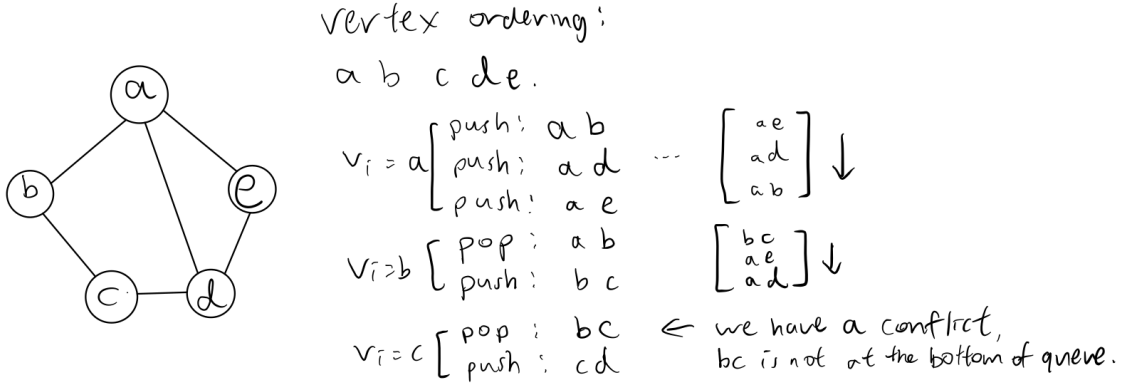 vertex ordering:
a b c d e.
a
b
c
d
e
vi = a
push: a b
push: a d
push: a e
...
ae
ad
ab
vi = b
pop: a b
push: b c
bc
ae
ad
vi = c
pop: bc
push: cd
← we have a conflict,
bc is not at the bottom of queue.